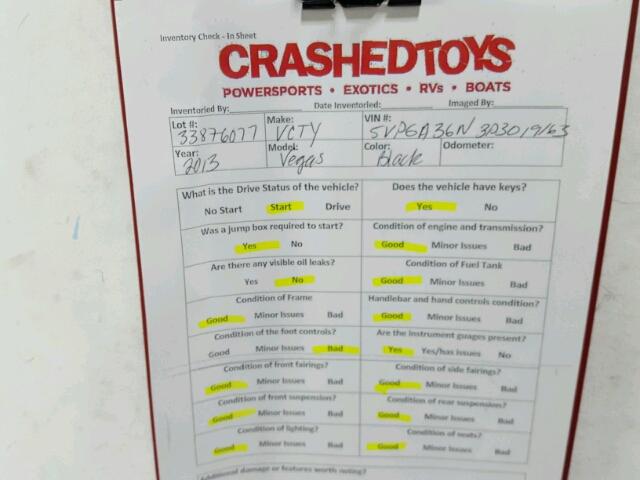 Inventory Check - In Sheet
CRASHEDTOYS
POWERSPORTS • EXOTICS • RVs • BOATS
Inventoried By: Date Inventoried: Imaged By:
Lot #: Make: VIN #:
33876077 VCTY 5VPGA36N3D3019163
Year: Model: Color: Odometer:
2013 Vegas Black
What is the Drive Status of the vehicle? Does the vehicle have keys?
No Start Start Drive Yes No
Was a jump box required to start? Condition of engine and transmission?
Yes No Good Minor Issues Bad
Are there any visible oil leaks? Condition of Fuel Tank
Yes No Good Minor Issues Bad
Condition of Frame Handlebar and hand controls condition?
Good Minor Issues Bad Good Minor Issues Bad
Condition of the foot controls? Are the instrument guages present?
Good Minor Issues Bad Yes Yes/has issues No
Condition of front fairings? Condition of side fairings?
Good Minor Issues Bad Good Minor Issues Bad
Condition of front suspension? Condition of rear suspension?
Good Minor Issues Bad Good Minor Issues Bad
Condition of lighting? Condition of seats?
Good Minor Issues Bad Good Minor Issues Bad
Additional damage or features worth noting?